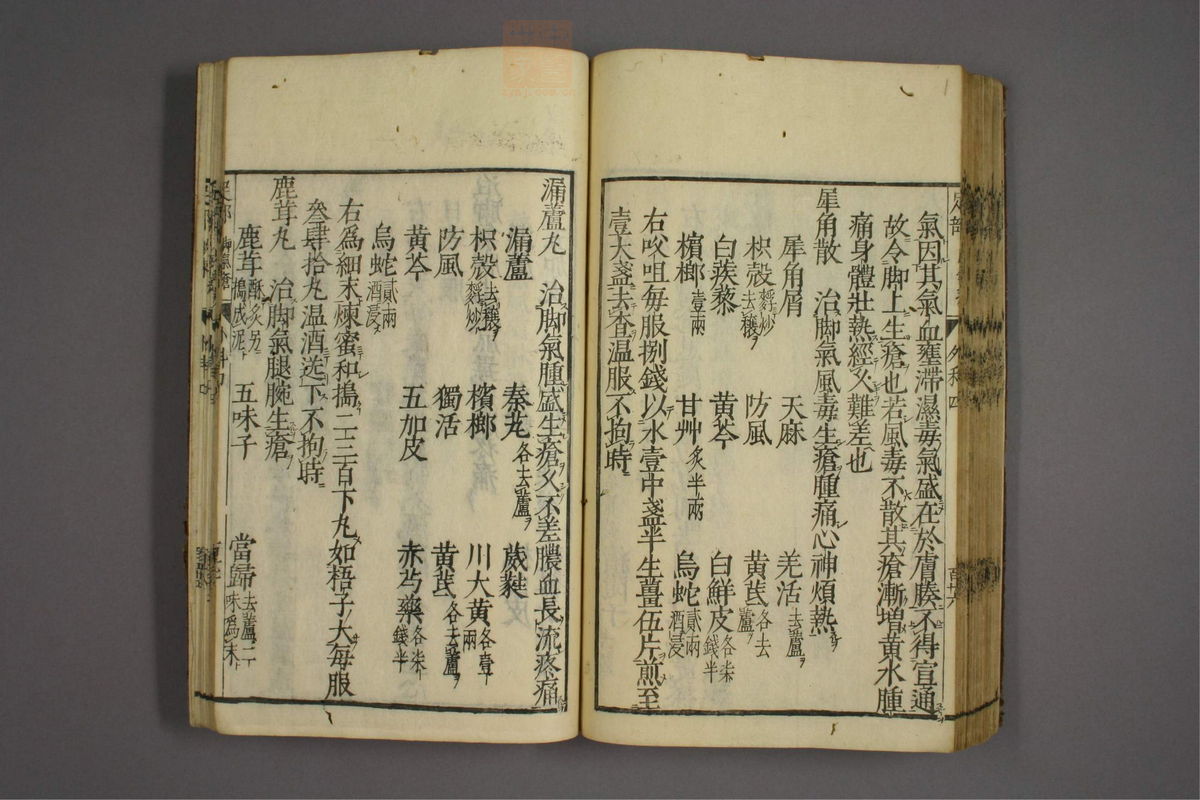 氣因其氣血壅滯濕毒氣盛在於膚腠不得宣通
故令脚上生瘡也若風毒不散其瘡漸增黄水腫
痛身體壯熱經久難差也
犀角散 治脚氣風毒生瘡腫痛心神煩熱
犀角屑 天麻 羌活去蘆
枳殼麩炒去穰 防風 黄芪各去蘆
白蒺藜 黄芩 白鮮皮各柒錢半
檳榔壹兩 甘艸炙半兩 烏蛇貳兩酒浸
右㕮咀每服捌錢以水壹中盞半生薑伍片煎至
壹大盞去柤温服不拘時
漏蘆丸 治脚氣腫盛生瘡久不差膿血長流疼痛
漏蘆 秦艽各去蘆 葳蕤
枳殼去穰麩炒 檳榔 川大黄各壹兩
防風 獨活 黄芪各去蘆
黄芩 五加皮 赤芍藥各柒錢半
烏蛇貳兩酒浸
右爲細末煉蜜和搗二三百下丸如梧子大每服
叄肆拾丸温酒送下不拘時
鹿茸丸 治脚氣腿腕生瘡
鹿茸酥炙另搗成泥 五味子 當歸去蘆二味爲末